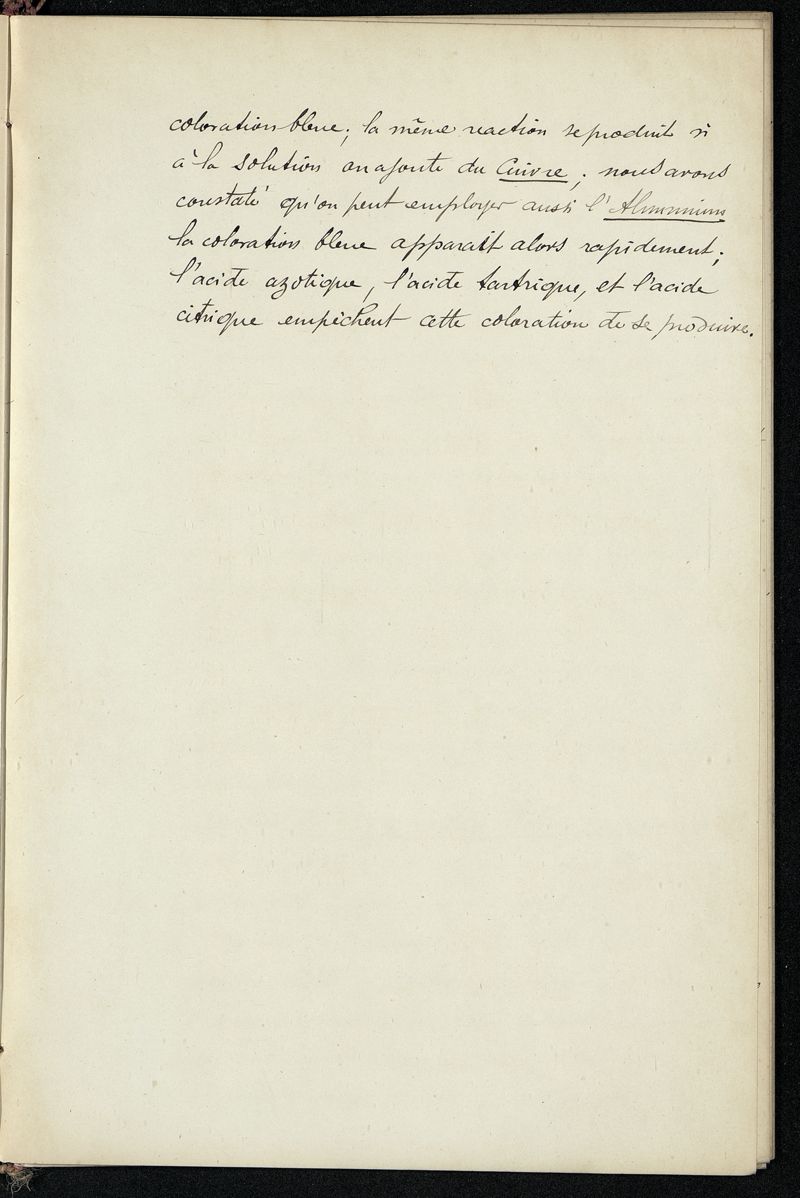 coloration bleue; la même reaction se produit si
à la solution on ajoute du Cuivre; nous avons
constaté qu'on peut employer aussi l'Aluminium
la coloration bleue apparait alors rapidement;
l'acide azotique, l'acide tartrique, et l'acide
citrique empêchent cette coloration de se produire.